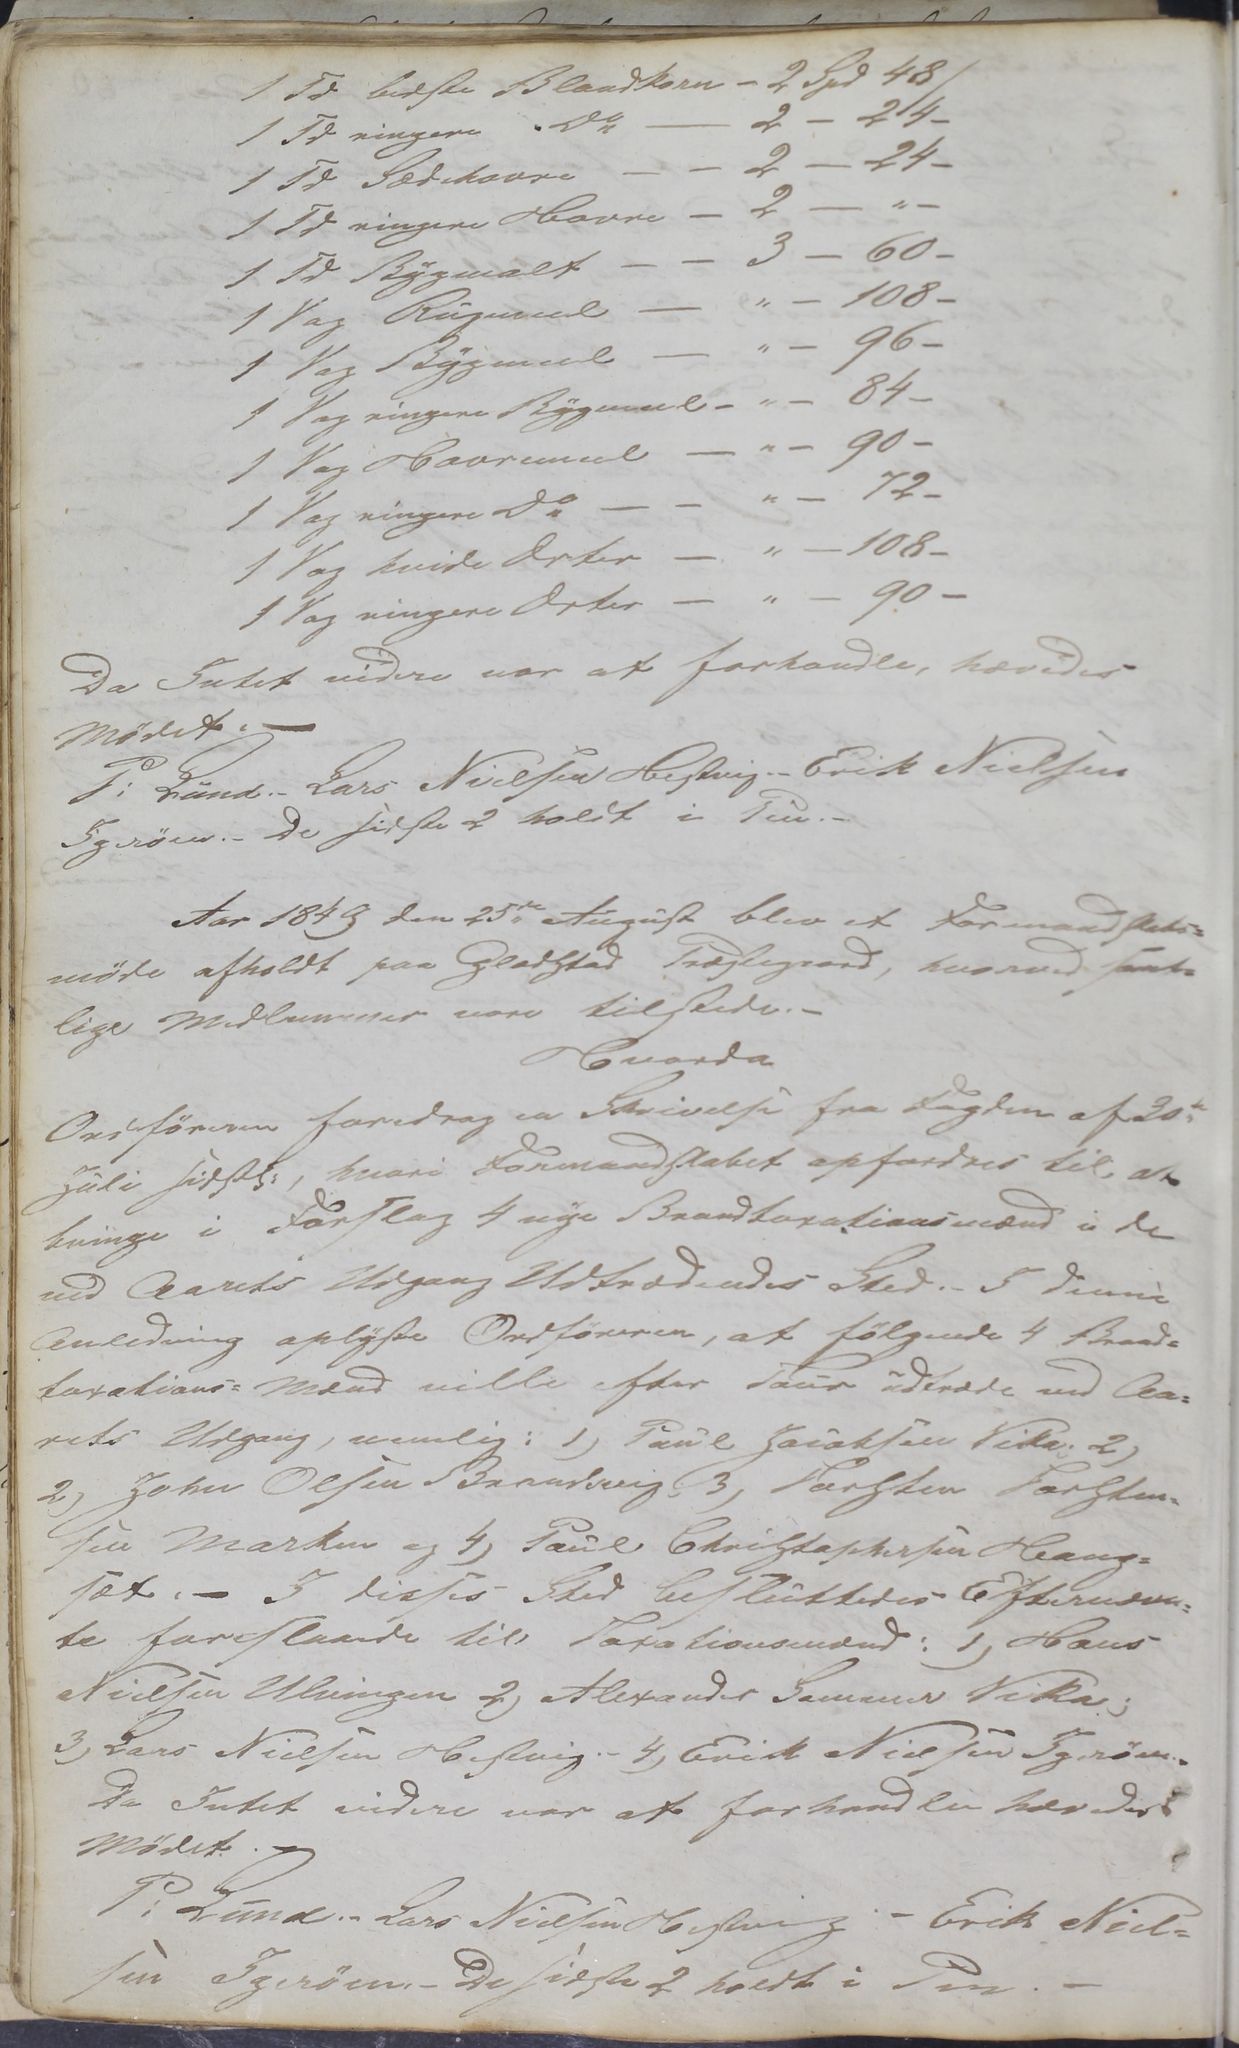 1 Td bedste Blandkorn - 2 Spd 48/
1 Td ringere Do — 2 - 24-
1 Td Sædehavre - - 2 - 24-
1 Td ringere Havre - 2 - " -
1 Td Bÿgmalt - - 3 - 60-
1 Vog Rugmeel — " - 108-
1 Vog Bÿgmeel — " - 96-
1 Vog ringere Bÿgmeel - " - 84-
1 Vog Havremeel — " - 90-
1 Vog ringere Do - - " - 72-
1 Vog hvide Erter — " - 108-
1 Vog ringere Erter — " - 90-
Da Intet videre var at forhandle, hævedes
Mødet. —
P: Lund.- Lars Nielsen Hestvig.- Erik Nielsen
Igerøen.- De sidste 2 holdt i Pen.-
Aar 1849 den 25de August blev et Formandskabs=
møde afholdt paa Gladstad Præstegaard, hvorved samt=
lige Medlemmer vare tilstede.-
Hvorda
Ordføreren foredrog en Skrivelse fra Fogden af 20de
Juli sidstl:, hvori Formandskabet opfordres til at
bringe i Forslag 4 nye Brandtaxationsmænd i de
ved Aarets Udgang Udtrædendes Sted.- I denne
Anledning oplÿste Ordføreren, at følgende 4 Brand=
taxations=Mænd ville efter Tour udtræde ved Aa=
rets Udgang, nemlig: 1) Paul Jacobsen Vika; 2)
2) John Olsen Brandsvig. 3) Torsten Torsten=
sen Marken og 4) Paul Christophersen Haang=
sæt.- I disses Sted besluttedes Efternævn=
te foreslaaede til Taxationsmænd: 1) Hans
Nielsen Ulvingen 2) Alexander Sommer Vika;
3) Lars Nielsen Hestvig.- 4) Erik Nielsen Igerøen.
Da Intet videre var at forhandle hævedes
Mødet.-
P: Lund.- Lars Nielsen Hestvig - Erik Niel=
sen Igerøen - De sidste 2 holdt i Pen.-